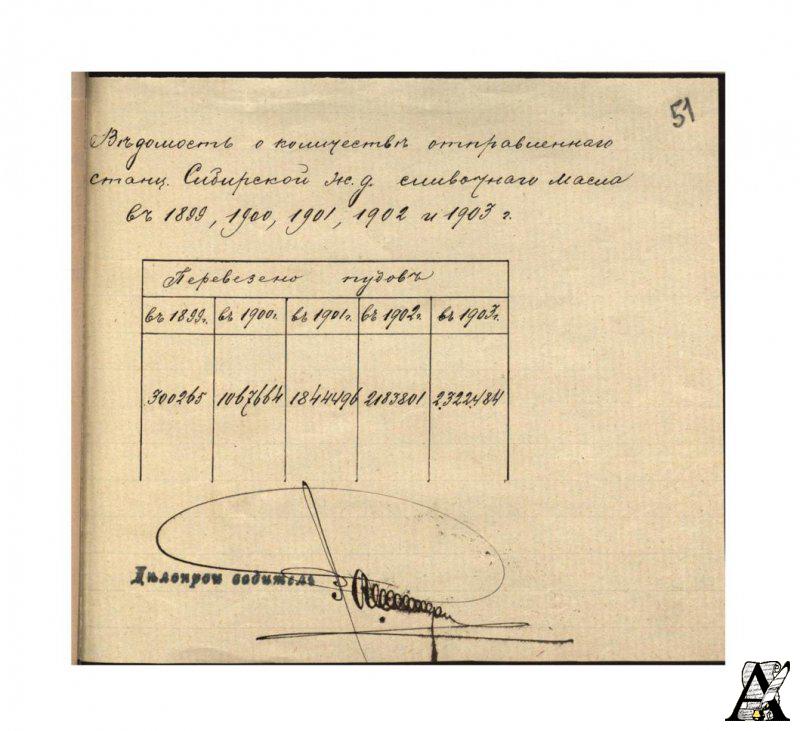 51
Вѣдомость о количествѣ отправленнаго
станц. Сибирской ж.д. сливочнаго масла
въ 1899, 1900, 1901, 1902 и 1903 г.
Перевезено пудовъ
въ 1899г. въ 1900г. въ 1901г. въ 1902г. въ 1903г.
300265 1067664 1844496 2183801 2322484
Дѣлопроизводитель